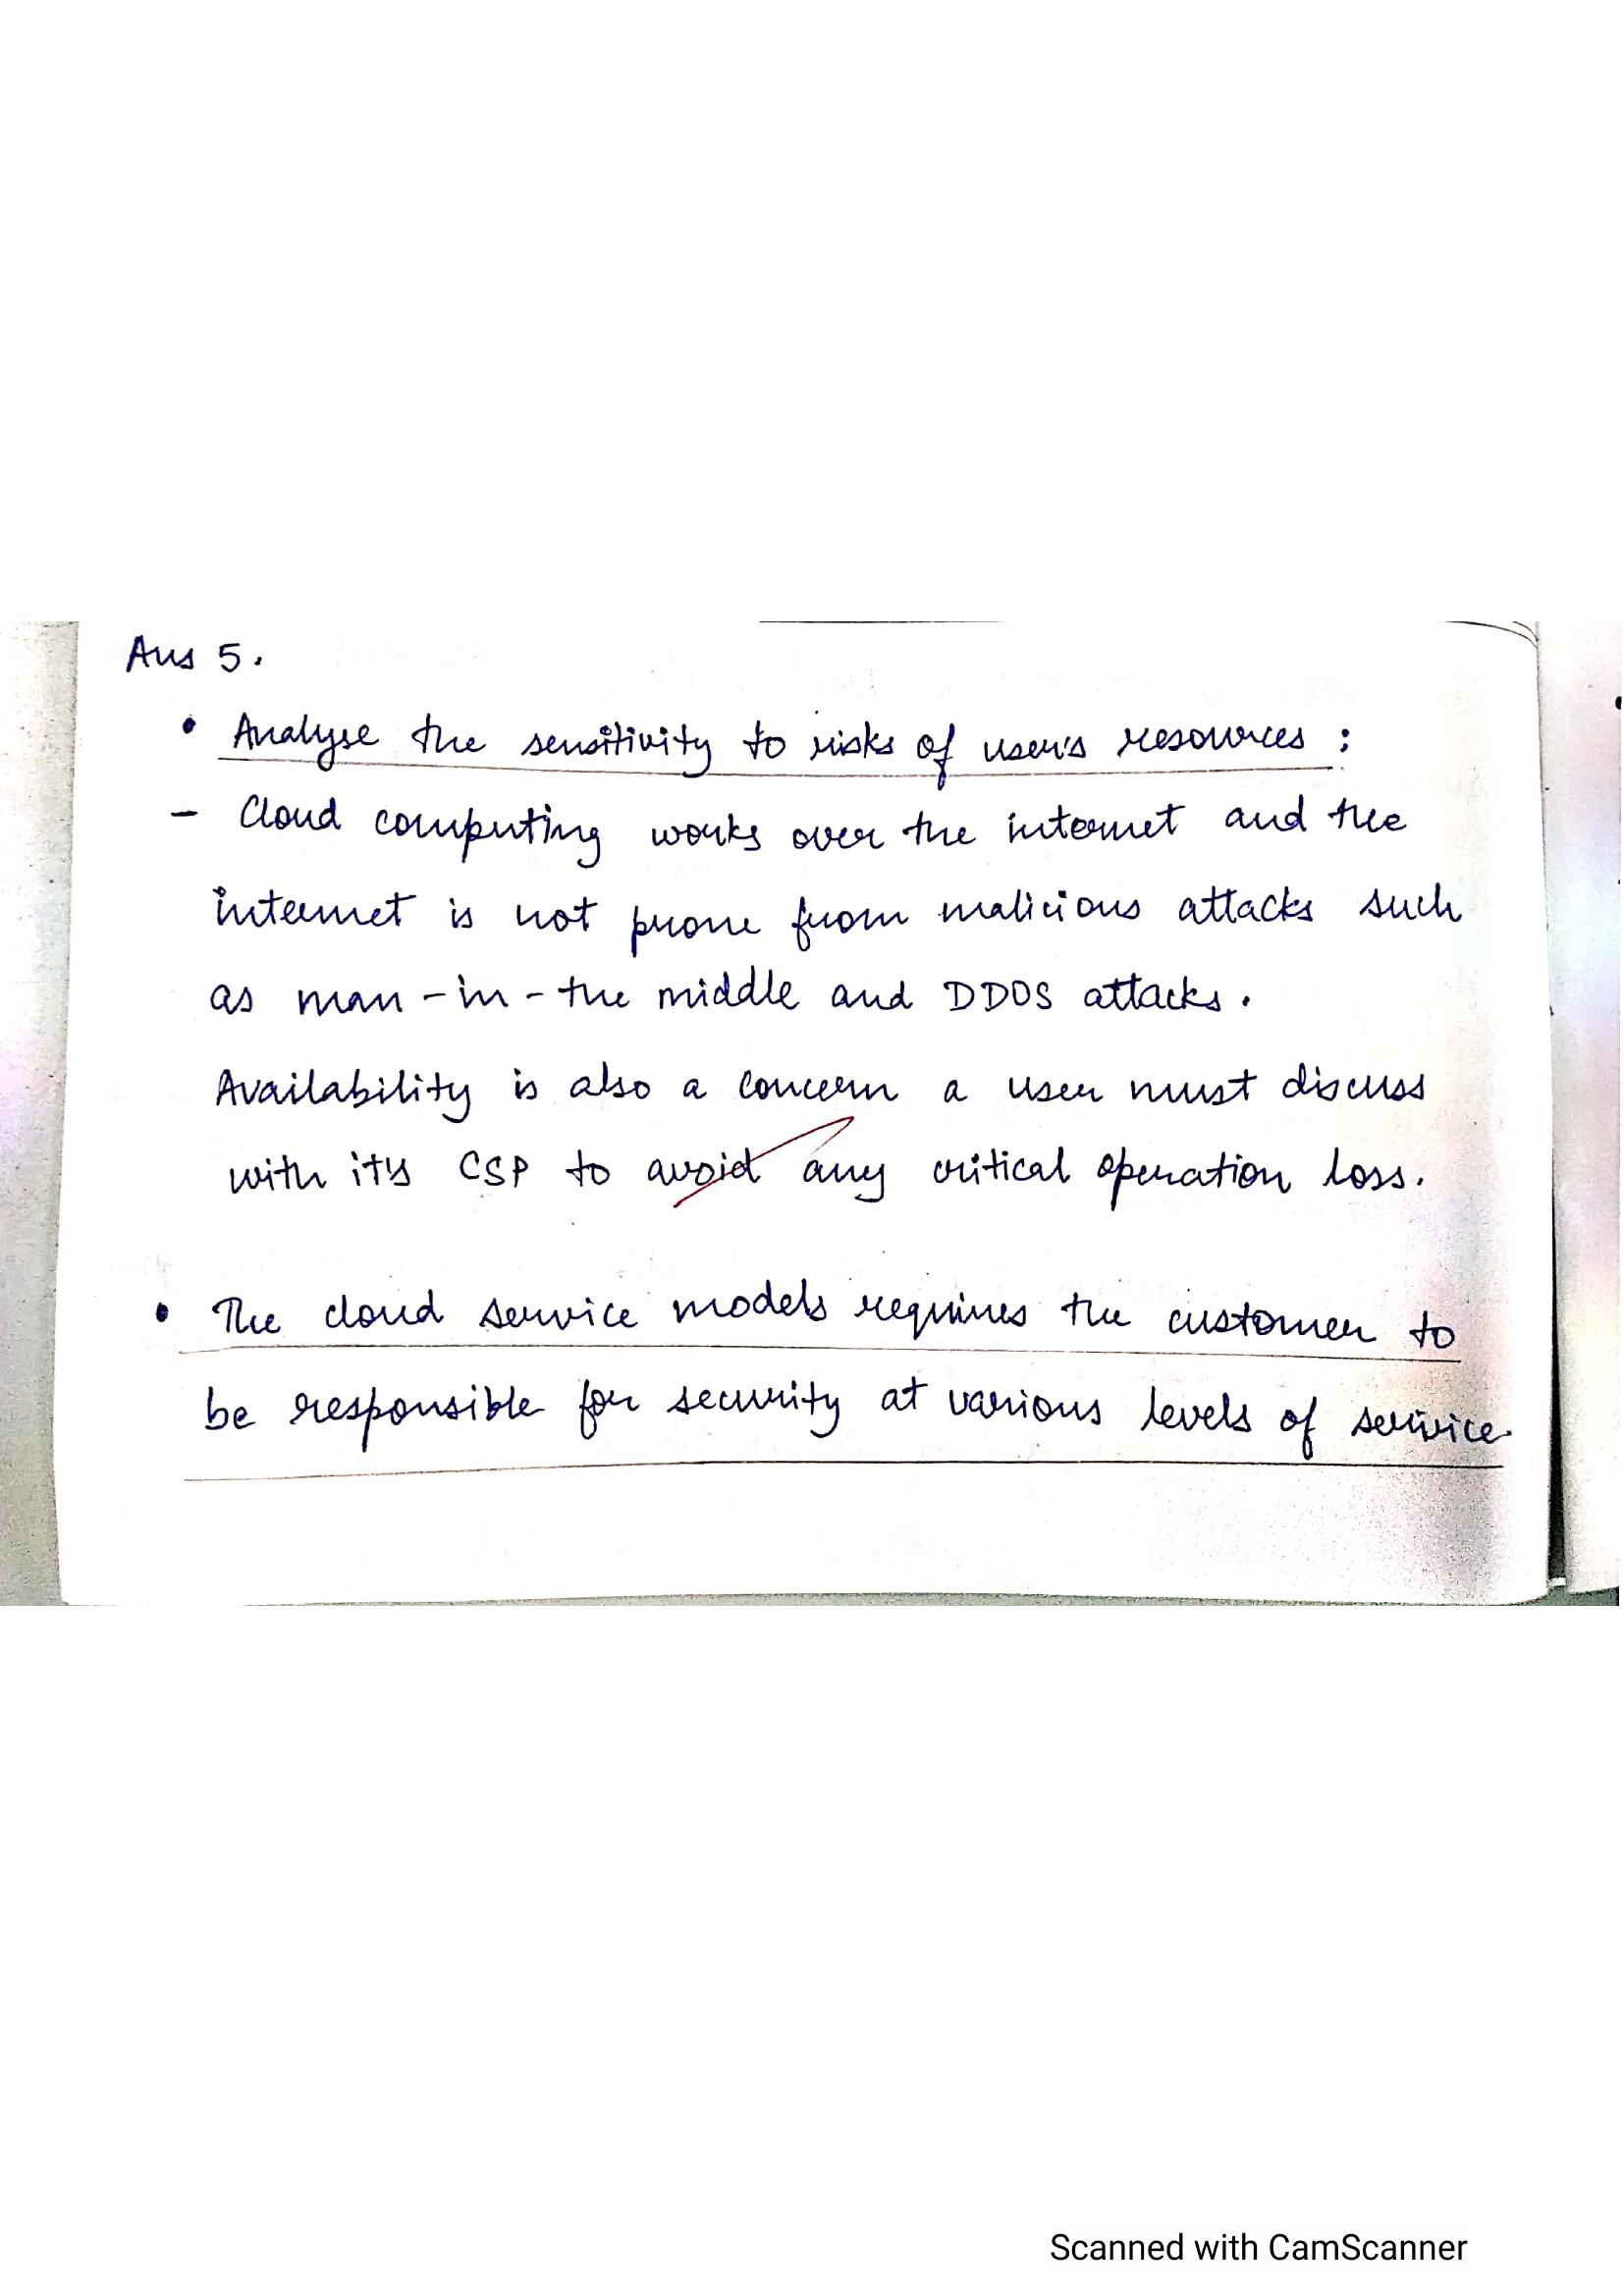 Ans 5.
• Analyse the sensitivity to risks of user's resources :
- Cloud computing works over the internet and the
internet is not prone from malicious attacks such
as man-in-the middle and DDOS attacks.
Availability is also a concern a user must discuss
with it's CSP to avoid any critical operation loss.
• The cloud service models requires the customer to
be responsible for security at various levels of service.
Scanned with CamScanner